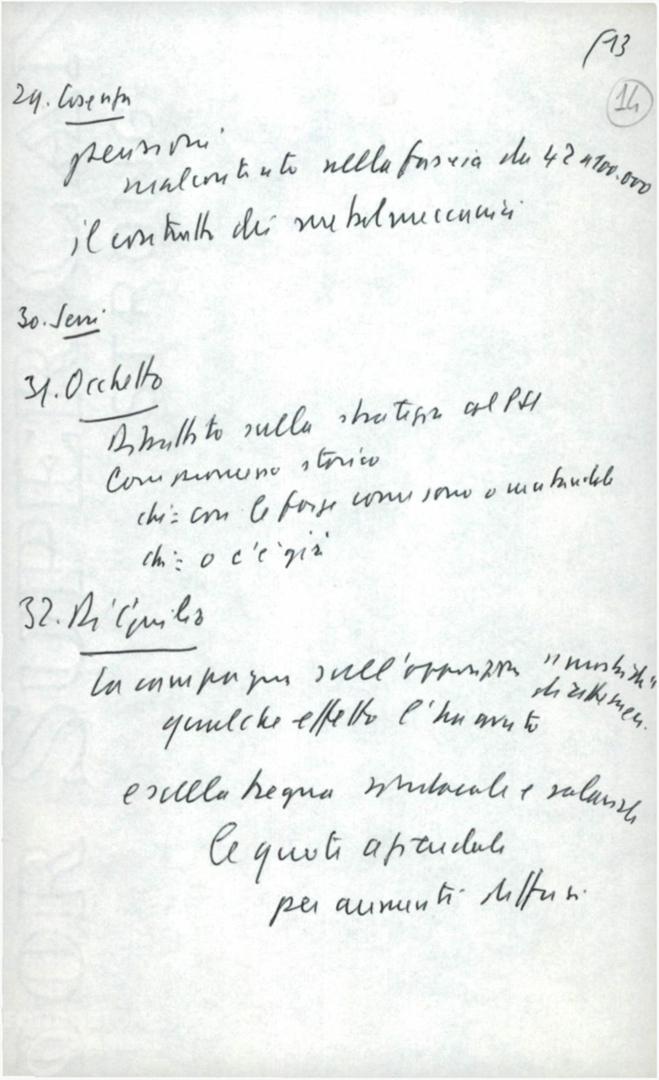 f 13
14
29. Cosenza
pensioni
malcontento nella fascia da 42 a 100.000
il contratto dei metalmeccanici
30. Serri
31. Occhetto
Dibattito sulla strategia del PSI
Compromesso storico
chi: con le forze come sono o mutandole
chi: o c'è già
32. Di Giulio
La campagna sull'opposizione "morbida"
qualche effetto l'ha avuto
e sulla tregua sindacale e salariale
le quote aziendali
per aumenti diffusi